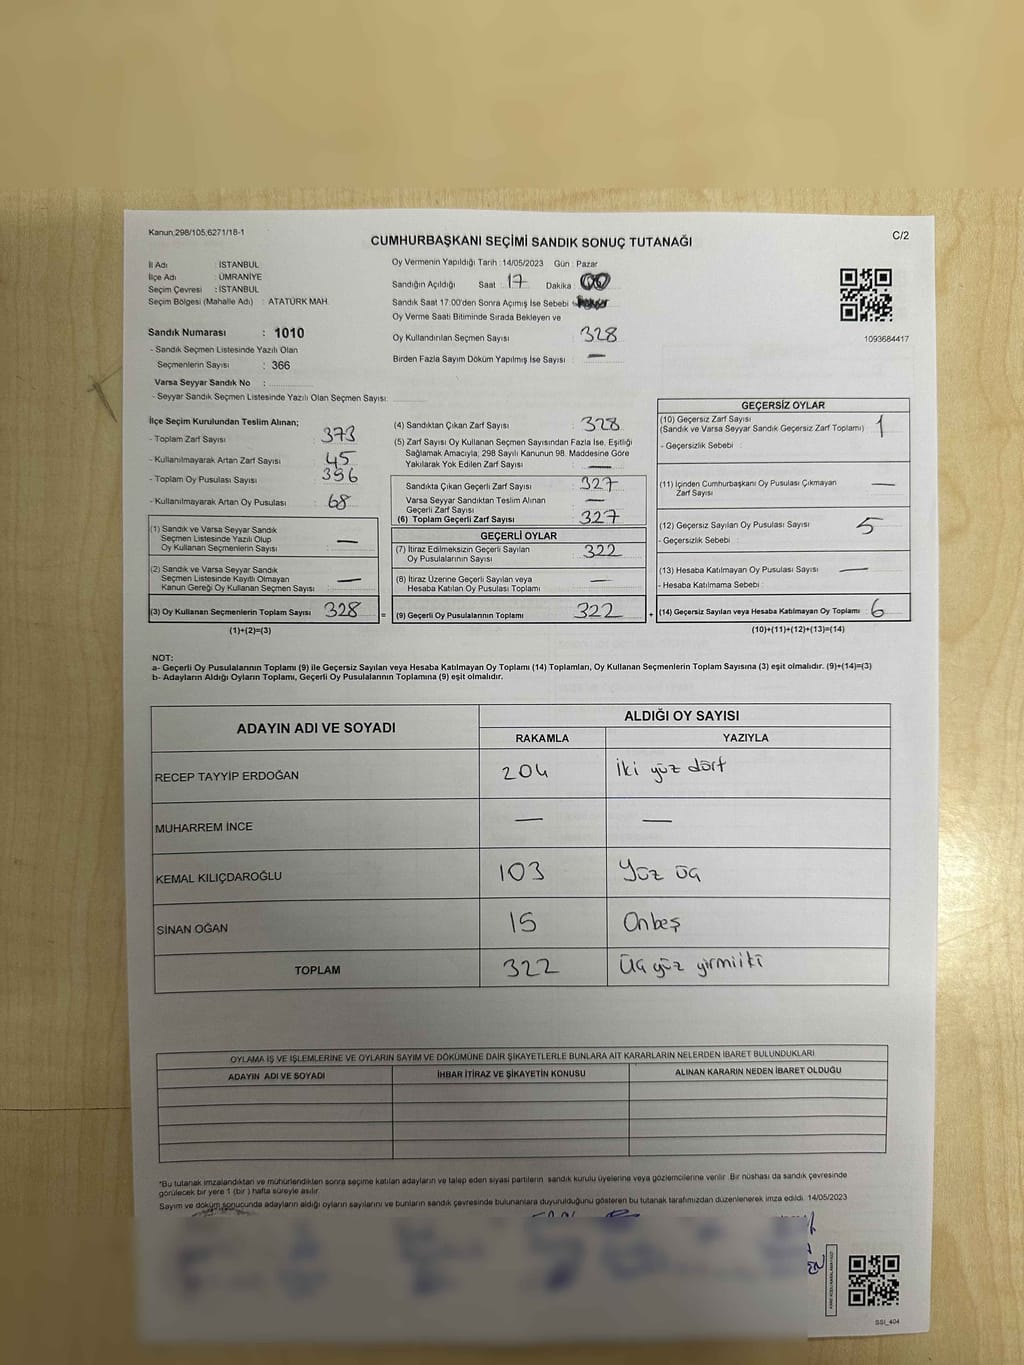 Kanun;298/105;6271/18-1
CUMHURBAŞKANI SEÇİMİ SANDIK SONUÇ TUTANAĞI
C/2
İl Adı : İSTANBUL
İlçe Adı : ÜMRANİYE
Seçim Çevresi : İSTANBUL
Seçim Bölgesi (Mahalle Adı) : ATATÜRK MAH.
Sandık Numarası : 1010
- Sandık Seçmen Listesinde Yazılı Olan
Seçmenlerin Sayısı : 366
Varsa Seyyar Sandık No :
- Seyyar Sandık Seçmen Listesinde Yazılı Olan Seçmen Sayısı:
Oy Vermenin Yapıldığı Tarih : 14/05/2023 Gün : Pazar
Sandığın Açıldığı Saat : 17 Dakika : 00
Sandık Saat 17:00'den Sonra Açımış İse Sebebi :
Oy Verme Saati Bitiminde Sırada Bekleyen ve
Oy Kullandırılan Seçmen Sayısı : 328
Birden Fazla Sayım Döküm Yapılmış İse Sayısı : —
1093684417
İlçe Seçim Kurulundan Teslim Alınan;
- Toplam Zarf Sayısı : 373
- Kullanılmayarak Artan Zarf Sayısı : 45
- Toplam Oy Pusulası Sayısı : 396
- Kullanılmayarak Artan Oy Pusulası : 68
(1) Sandık ve Varsa Seyyar Sandık
Seçmen Listesinde Yazılı Olup
Oy Kullanan Seçmenlerin Sayısı : —
(2) Sandık ve Varsa Seyyar Sandık
Seçmen Listesinde Kayıtlı Olmayan
Kanun Gereği Oy Kullanan Seçmen Sayısı : —
(3) Oy Kullanan Seçmenlerin Toplam Sayısı : 328 =
(1)+(2)=(3)
(4) Sandıktan Çıkan Zarf Sayısı : 328
(5) Zarf Sayısı Oy Kullanan Seçmen Sayısından Fazla İse, Eşitliği
Sağlamak Amacıyla; 298 Sayılı Kanunun 98. Maddesine Göre
Yakılarak Yok Edilen Zarf Sayısı : —
Sandıkta Çıkan Geçerli Zarf Sayısı : 327
Varsa Seyyar Sandıktan Teslim Alınan
Geçerli Zarf Sayısı : —
(6) Toplam Geçerli Zarf Sayısı : 327
GEÇERLİ OYLAR
(7) İtiraz Edilmeksizin Geçerli Sayılan
Oy Pusulalarının Sayısı : 322
(8) İtiraz Üzerine Geçerli Sayılan veya
Hesaba Katılan Oy Pusulası Toplamı : —
(9) Geçerli Oy Pusulalarının Toplamı : 322 +
GEÇERSİZ OYLAR
(10) Geçersiz Zarf Sayısı
(Sandık ve Varsa Seyyar Sandık Geçersiz Zarf Toplamı) : 1
- Geçersizlik Sebebi :
(11) İçinden Cumhurbaşkanı Oy Pusulası Çıkmayan
Zarf Sayısı : —
(12) Geçersiz Sayılan Oy Pusulası Sayısı : 5
- Geçersizlik Sebebi :
(13) Hesaba Katılmayan Oy Pusulası Sayısı : —
- Hesaba Katılmama Sebebi :
(14) Geçersiz Sayılan veya Hesaba Katılmayan Oy Toplamı : 6
(10)+(11)+(12)+(13)=(14)
NOT:
a- Geçerli Oy Pusulalarının Toplamı (9) ile Geçersiz Sayılan veya Hesaba Katılmayan Oy Toplamı (14) Toplamları, Oy Kullanan Seçmenlerin Toplam Sayısına (3) eşit olmalıdır. (9)+(14)=(3)
b- Adayların Aldığı Oyların Toplamı, Geçerli Oy Pusulalarının Toplamına (9) eşit olmalıdır.
ADAYIN ADI VE SOYADI ALDIĞI OY SAYISI
RAKAMLA YAZIYLA
RECEP TAYYİP ERDOĞAN 204 İki yüz dört
MUHARREM İNCE — —
KEMAL KILIÇDAROĞLU 103 Yüz üç
SİNAN OĞAN 15 Onbeş
TOPLAM 322 Üç yüz yirmiiki
OYLAMA İŞ VE İŞLEMLERİNE VE OYLARIN SAYIM VE DÖKÜMÜNE DAİR ŞİKAYETLERLE BUNLARA AİT KARARLARIN NELERDEN İBARET BULUNDUKLARI
ADAYIN ADI VE SOYADI İHBAR İTİRAZ VE ŞİKAYETİN KONUSU ALINAN KARARIN NEDEN İBARET OLDUĞU
*Bu tutanak imzalandıktan ve mühürlendikten sonra seçime katılan adayların ve talep eden siyasi partilerin sandık kurulu üyelerine veya gözlemcilerine verilir. Bir nüshası da sandık çevresinde
görülecek bir yere 1 (bir) hafta süreyle asılır.
Sayım ve döküm sonucunda adayların aldığı oyların sayılarını ve bunların sandık çevresinde bulunanlara duyurulduğunu gösteren bu tutanak tarafımızdan düzenlenerek imza edildi. 14/05/2023
SSI_404